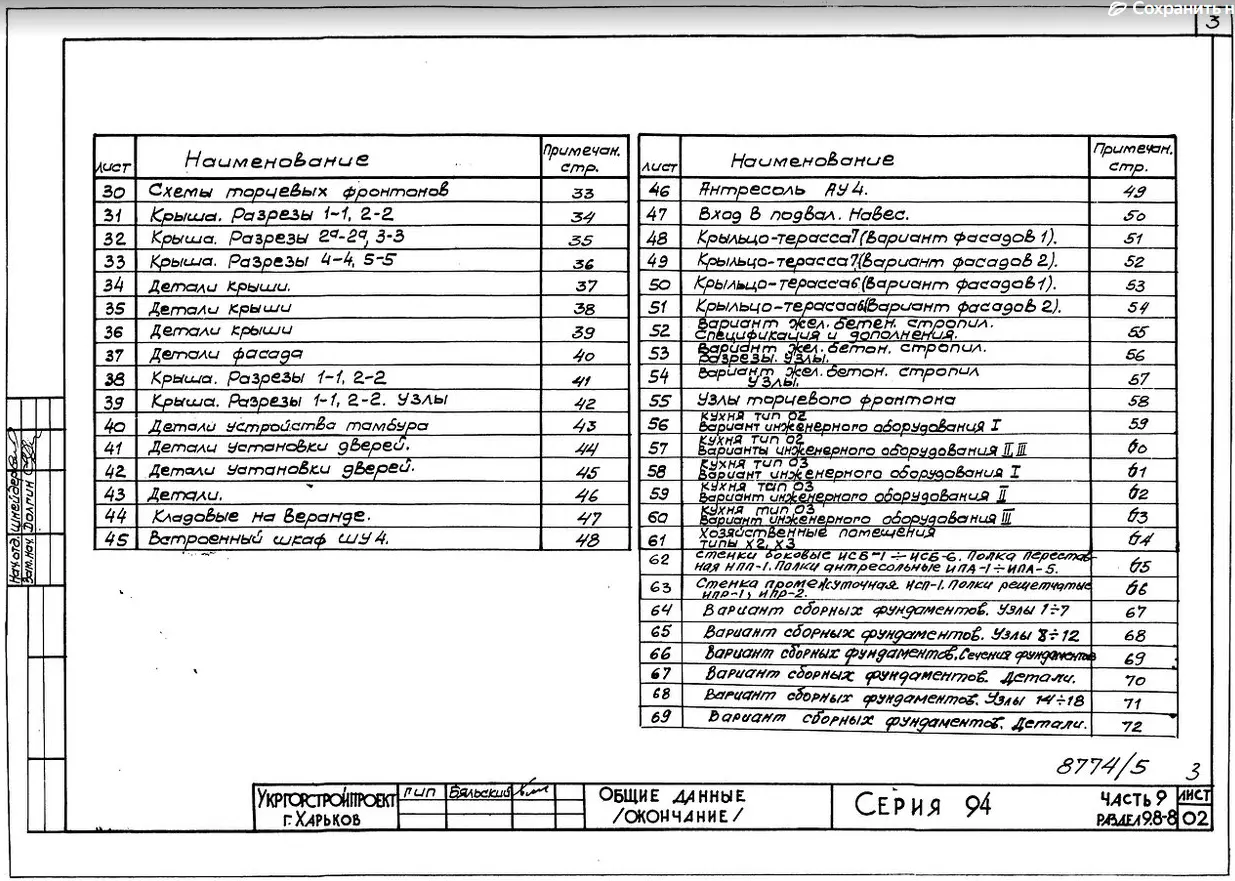 Сохранить н
3
Лист Наименование Примечан. стр.
30 Схемы торцевых фронтонов 33
31 Крыша. Разрезы 1-1, 2-2 34
32 Крыша. Разрезы 2а-2а, 3-3 35
33 Крыша. Разрезы 4-4, 5-5 36
34 Детали крыши. 37
35 Детали крыши 38
36 Детали крыши 39
37 Детали фасада 40
38 Крыша. Разрезы 1-1, 2-2 41
39 Крыша. Разрезы 1-1, 2-2. Узлы 42
40 Детали устройства тамбура 43
41 Детали установки дверей. 44
42 Детали установки дверей. 45
43 Детали. 46
44 Кладовые на веранде. 47
45 Встроенный шкаф ШУ4. 48
Лист Наименование Примечан. стр.
46 Антресоль АУ4. 49
47 Вход в подвал. Навес. 50
48 Крыльцо-терасса7(Вариант фасадов 1). 51
49 Крыльцо-терасса7(Вариант фасадов 2). 52
50 Крыльцо-терасса6(Вариант фасадов1). 53
51 Крыльцо-терасаа6(Вариант фасадов 2). 54
52 Вариант жел. бетен. стропил.
Спецификация и дополнения. 55
53 Вариант жел. бетон. стропил.
Разрезы. Узлы. 56
54 Вариант жел. бетон. стропил
Узлы. 57
55 Узлы торцевого фронтона 58
56 Кухня тип 02
Вариант инженерного оборудования I 59
57 Кухня тип 02
Варианты инженерного оборудования II, III 60
58 Кухня тип 03
Вариант инженерного оборудования I 61
59 Кухня тип 03
Вариант инженерного оборудования II 62
60 Кухня тип 03
Вариант инженерного оборудования III 63
61 Хозяйственные помещения
типы Х2, Х3 64
62 Стенки боковые ИСБ-1÷ИСБ-6. Полка перестав-
ная НПП-1. Полки антресольные ИПА-1÷ИПА-5. 65
63 Стенка промежуточная ИСП-1. Полки решетчатые
ИПР-1, ИПР-2. 66
64 Вариант сборных фундаментов. Узлы 1÷7 67
65 Вариант сборных фундаментов. Узлы 8÷12 68
66 Вариант сборных фундаментов. Сечения фундаментов 69
67 Вариант сборных фундаментов. Детали. 70
68 Вариант сборных фундаментов. Узлы 14÷18 71
69 Вариант сборных фундаментов. Детали. 72
Нач.отд. Шнейдер
Зам.нач. Долгин
8774/5 3
Укргорстройпроект
г. Харьков
ГИП Бяльский
Общие данные
/окончание/
Серия 94
Часть 9
раздел 9.8-8
Лист
02